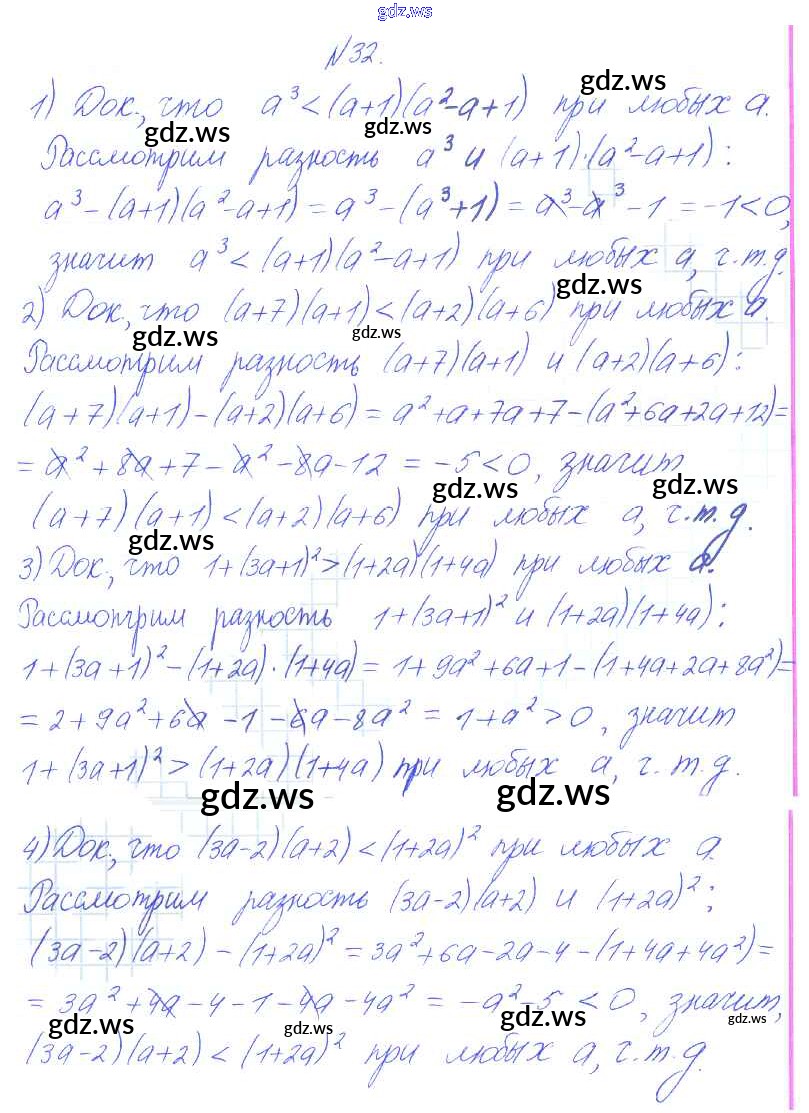 gdz.ws
N32.
1) Док, что a³ < (a+1)(a²-a+1) при любых a.
Рассмотрим разность a³ и (a+1)·(a²-a+1):
a³-(a+1)(a²-a+1) = a³-(a³+1) = a³-a³-1 = -1<0,
значит a³ < (a+1)(a²-a+1) при любых a, ч.т.д.
2) Док, что (a+7)(a+1)<(a+2)(a+6) при любых a.
Рассмотрим разность (a+7)(a+1) и (a+2)(a+6):
(a+7)(a+1)-(a+2)(a+6) = a²+a+7a+7-(a²+6a+2a+12)=
= a²+8a+7-a²-8a-12 = -5<0, значит
(a+7)(a+1)<(a+2)(a+6) при любых a, ч.т.д.
3) Док, что 1+(3a+1)²>(1+2a)(1+4a) при любых a.
Рассмотрим разность 1+(3a+1)² и (1+2a)(1+4a):
1+(3a+1)²-(1+2a)·(1+4a) = 1+9a²+6a+1-(1+4a+2a+8a²)=
= 2+9a²+6a-1-6a-8a² = 1+a²>0, значит
1+(3a+1)²>(1+2a)(1+4a) при любых a, ч.т.д.
4) Док, что (3a-2)(a+2)<(1+2a)² при любых a
Рассмотрим разность (3a-2)(a+2) и (1+2a)²:
(3a-2)(a+2)-(1+2a)² = 3a²+6a-2a-4-(1+4a+4a²)=
= 3a²+4a-4-1-4a-4a² = -a²-5<0, значит,
(3a-2)(a+2)<(1+2a)² при любых a, ч.т.д.